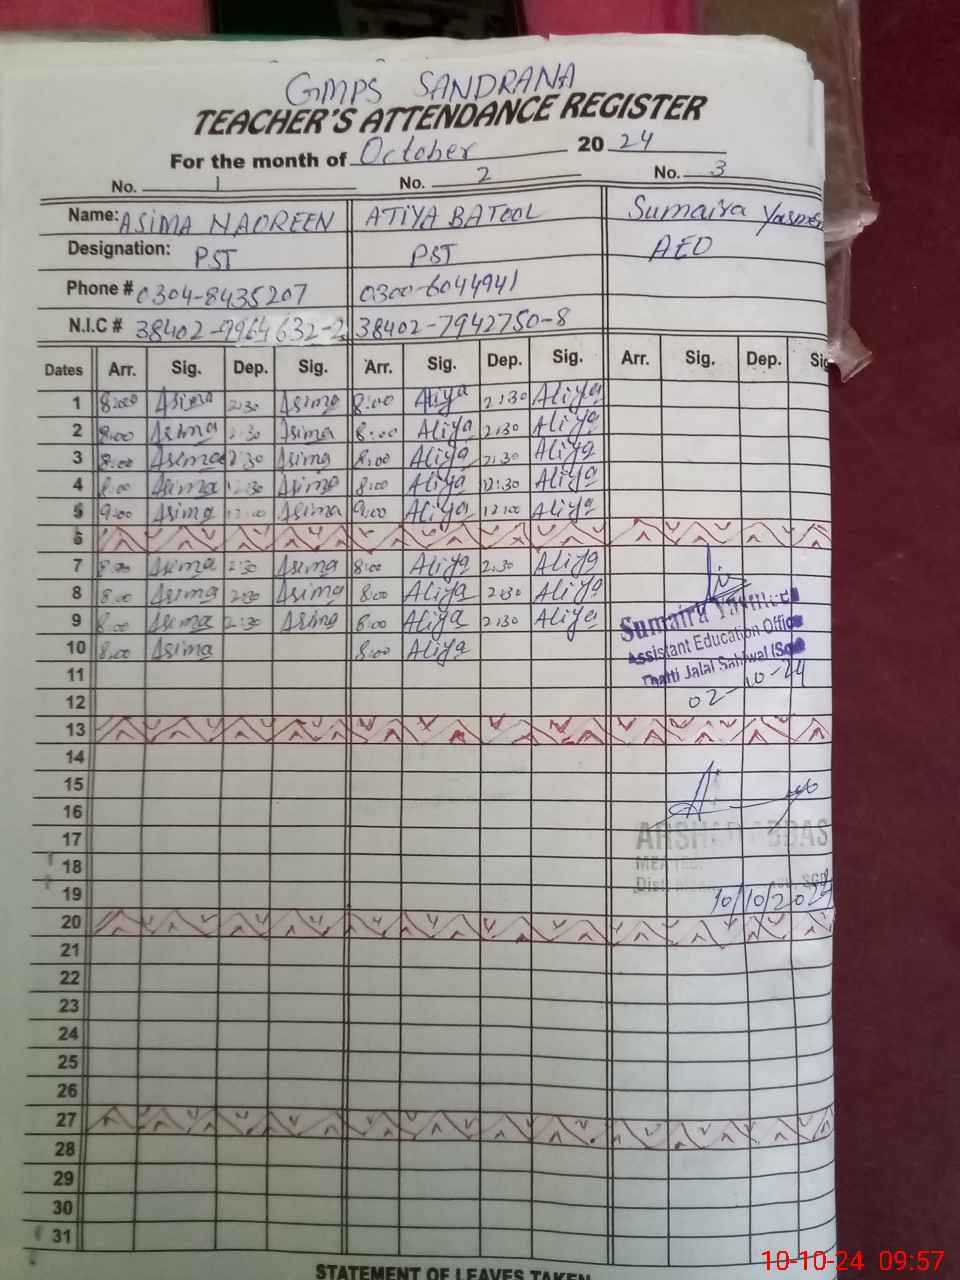 GMPS SANDRANA
TEACHER'S ATTENDANCE REGISTER
For the month of October 2024
No. 1 No. 2 No. 3
Name: ASIMA NAOREEN ATIYA BATOOL Sumaira Yasmeen
Designation: PST PST AEO
Phone # 0304-8435207 0300-6044941
N.I.C # 38402-9964632-2 38402-7942750-8
Dates Arr. Sig. Dep. Sig. Arr. Sig. Dep. Sig. Arr. Sig. Dep. Sig
1 8:00 Asima 2:30 Asima 8:00 Atiya 2:30 Atiya
2 8:00 Asima 2:30 Asima 8:00 Atiya 2:30 Atiya
3 8:00 Asima 2:30 Asima 8:00 Atiya 2:30 Atiya
4 8:00 Asima 12:30 Asima 8:00 Atiya 12:30 Atiya
5 9:00 Asima 12:00 Asima 9:00 Atiya 12:00 Atiya
6
7 8:00 Asima 2:30 Asima 8:00 Atiya 2:30 Atiya
8 8:00 Asima 2:30 Asima 8:00 Atiya 2:30 Atiya
9 8:00 Asima 2:30 Asima 8:00 Atiya 2:30 Atiya
Sumaira Yasmeen
Assistant Education Office
10 8:00 Asima 8:00 Atiya
Thatti Jalal Sahiwal (Sgd
11
02-10-24
12
13
14
15
16
17
ARSHAD ABBAS
18
MEA
19
10/10/2024
20
21
22
23
24
25
26
27
28
29
30
31
STATEMENT OF LEAVES TAKEN
10-10-24 09:57